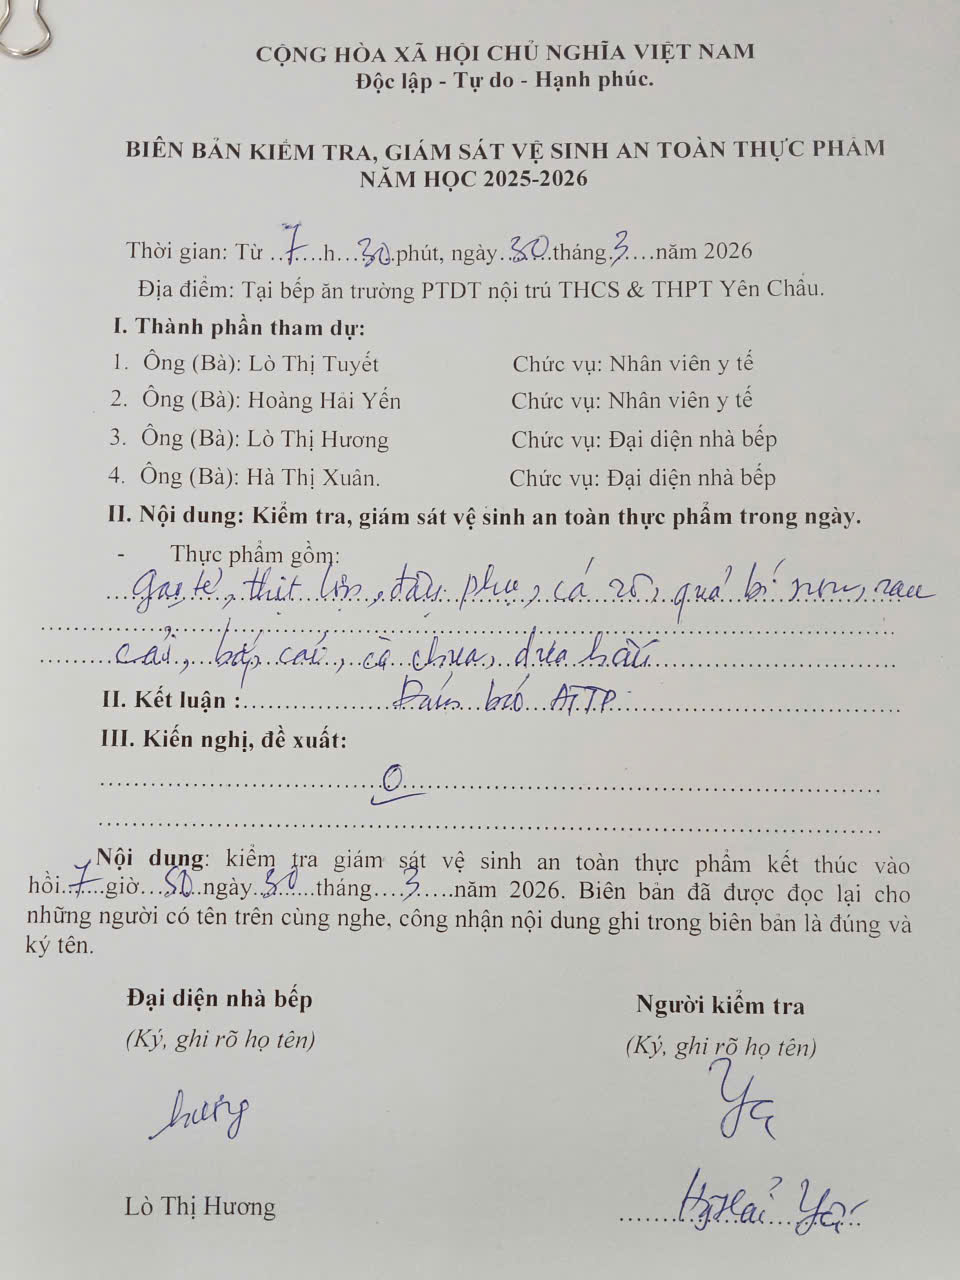 CỘNG HÒA XÃ HỘI CHỦ NGHĨA VIỆT NAM
Độc lập - Tự do - Hạnh phúc.
BIÊN BẢN KIỂM TRA, GIÁM SÁT VỆ SINH AN TOÀN THỰC PHẨM
NĂM HỌC 2025-2026
Thời gian: Từ ..7....h...30.phút, ngày..30.tháng.3....năm 2026
Địa điểm: Tại bếp ăn trường PTDT nội trú THCS & THPT Yên Châu.
I. Thành phần tham dự:
1. Ông (Bà): Lò Thị Tuyết Chức vụ: Nhân viên y tế
2. Ông (Bà): Hoàng Hải Yến Chức vụ: Nhân viên y tế
3. Ông (Bà): Lò Thị Hương Chức vụ: Đại diện nhà bếp
4. Ông (Bà): Hà Thị Xuân. Chức vụ: Đại diện nhà bếp
II. Nội dung: Kiểm tra, giám sát vệ sinh an toàn thực phẩm trong ngày.
- Thực phẩm gồm:
Gạo tẻ, thịt lợn, đậu phụ, cá rô, quả bí non, rau
cải, bắp cải, cà chua, dưa hấu
II. Kết luận : Đảm bảo ATTP
III. Kiến nghị, đề xuất:
0
Nội dung: kiểm tra giám sát vệ sinh an toàn thực phẩm kết thúc vào
hồi..7...giờ...50..ngày..30...tháng....3....năm 2026. Biên bản đã được đọc lại cho
những người có tên trên cùng nghe, công nhận nội dung ghi trong biên bản là đúng và
ký tên.
Đại diện nhà bếp Người kiểm tra
(Ký, ghi rõ họ tên) (Ký, ghi rõ họ tên)
Hương
Lò Thị Hương Hải Yến